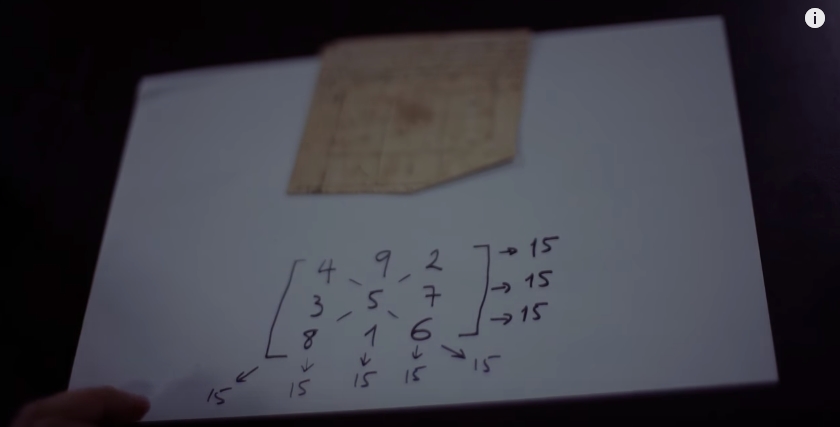 4 9 2 → 15
3 5 7 → 15
8 1 6 → 15
15 15 15 15 15